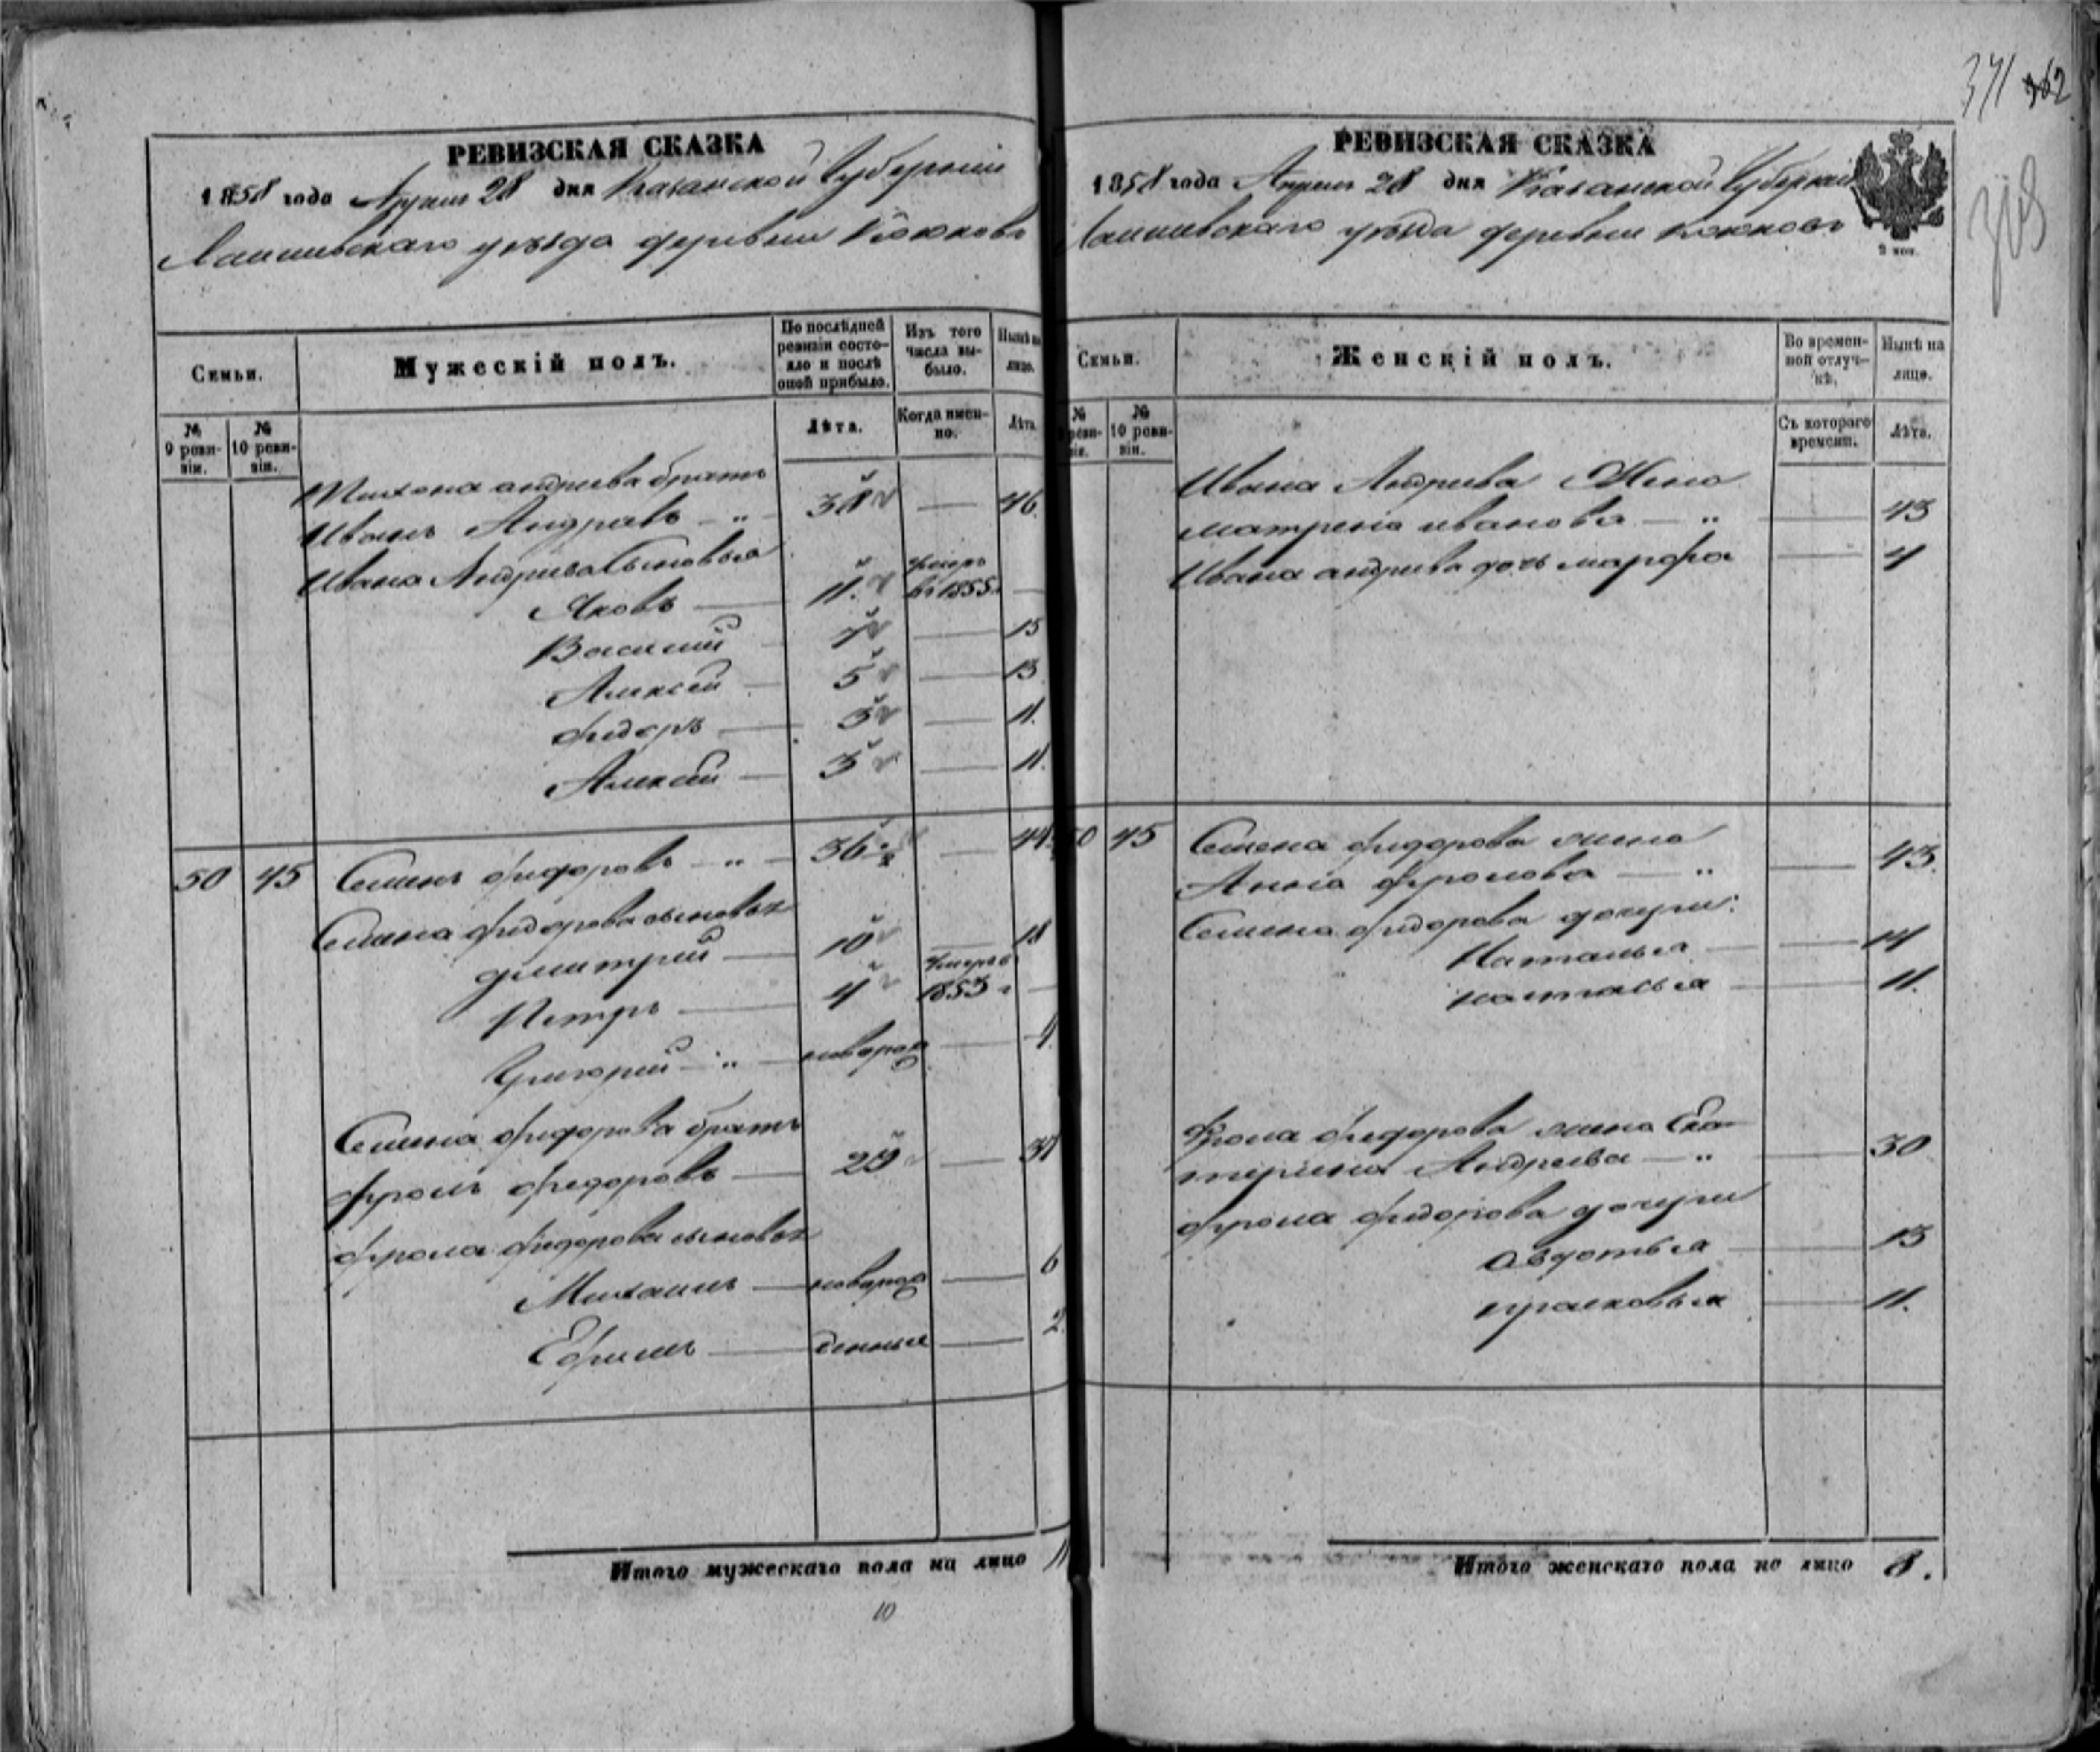 371 362
318
РЕВИЗСКАЯ СКАЗКА
1858 года Апреля 28 дня Казанской Губернии
Лаишевскаго уезда деревни
Семьи.
Мужескій полъ.
По послѣдней ревизіи состояло и послѣ оной прибыло.
Изъ того числа выбыло.
Нынѣ на лицо.
№ 9 ревизіи.
№ 10 ревизіи.
Лѣта.
Когда именно.
Лѣта.
андреева братъ
Иванъ Андреевъ — " 38 — 46.
Ивана Андреева Сыновья
Яковъ — 11. умеръ въ 1855 —
Василий 7 — 15
Алексей — 5 — 13
Федоръ — 3 — 11.
Алексей — 3 — 11.
50 45 Семенъ Федоровъ — " — 36 — 44.
Семена Федорова сыновья
Дмитрий — 10 — 18
Петръ — 4 умеръ в 1853 г —
Григорий — " — новорож — 4.
Семена Федорова братъ
Фролъ Федоровъ — 29 — 37
Фрола Федорова сыновья
Михаилъ — новорож — 6
Ефимъ — денные — 2.
Итого мужескаго пола на лицо 11
10
РЕВИЗСКАЯ СКАЗКА
1858 года Апреля 28 дня Казанской Губернии
Лаишевскаго уезда деревни
2 коп.
Семьи.
Женскій полъ.
Во временной отлучкѣ.
Нынѣ на лице.
№ 9 ревизіи.
№ 10 ревизіи.
Съ котораго времени.
Лѣта.
Ивана Андреева Жена
Матрена Иванова — " — 43
Ивана андреева дочь марфа — 4
50 45 Семена Федорова жена
Анна Фролова — " — 43.
Семена Федорова дочери:
Наталья — 14
наталья — 11.
Фрола Федорова жена Ека-
терина Андреева — " — 30
Фрола Федорова дочери
Авдотья — 13
прасковья — 11.
Итого женскаго пола на лицо 8.